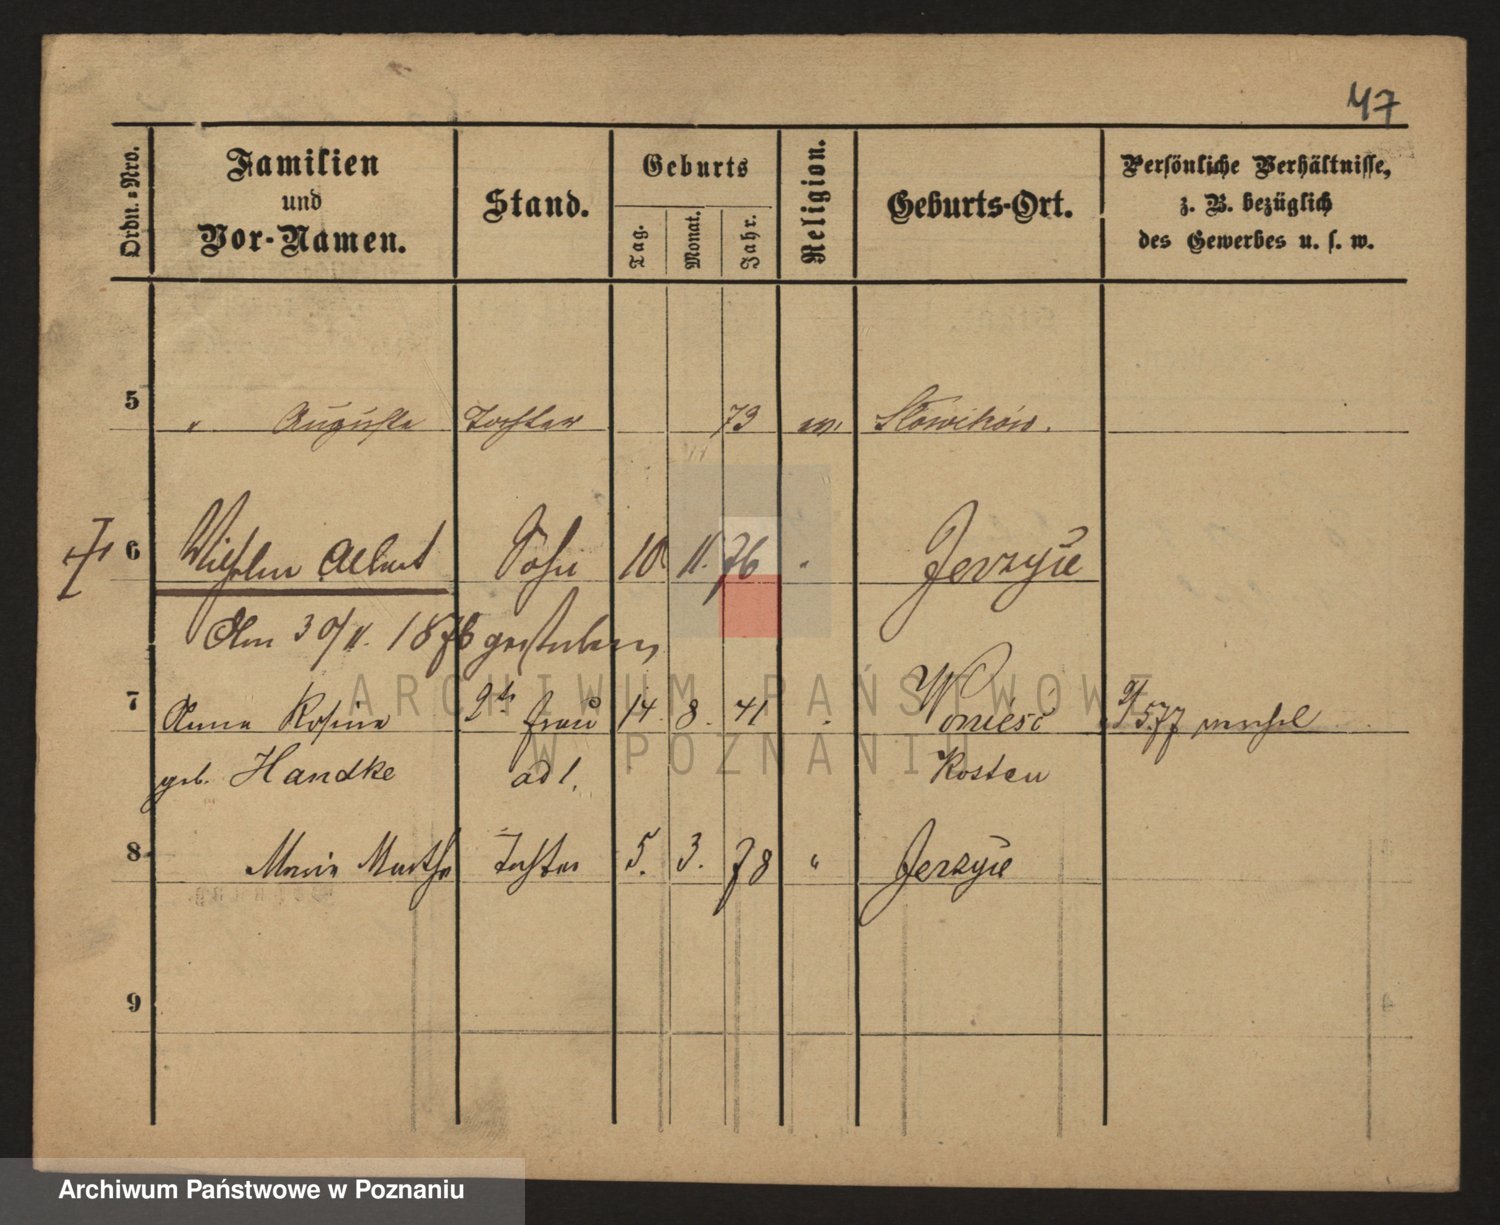 47
Ordn.-Nro.
Familien
und
Vor-Namen.
Stand.
Geburts
Tag.
Monat.
Jahr.
Religion.
Geburts-Ort.
Persönliche Verhältnisse,
z. B. bezüglich
des Gewerbes u. s. w.
5 " Auguste Tochter 73 ev. Słowikowo.
6 Wilhelm Albert Sohn 10. 11. 76 " Jerzyce
Am 30/11. 1876 gestorben
7 Anna Rosine 2te Frau 14. 8. 41 " Woniesc 9/5 77
geb. Handke ad 1. Kosten
8 Marie Martha Tochter 5. 3. 78 " Jerzyce
9
ARCHIWUM PAŃSTWOWE
W POZNANIU
Archiwum Państwowe w Poznaniu